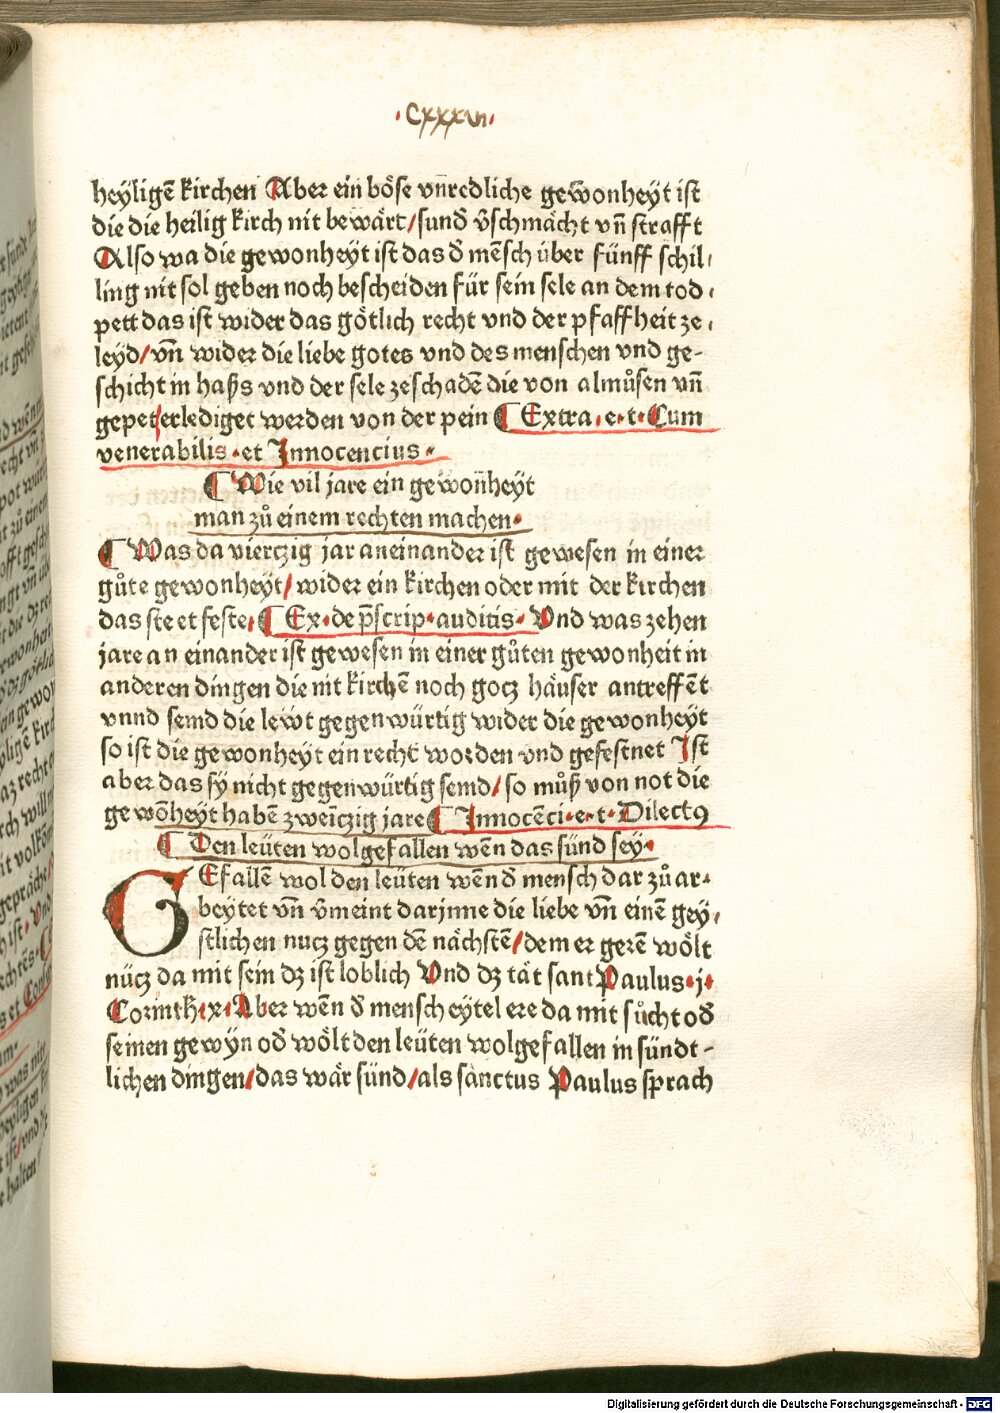 ·Cxxxvii·
heÿligē kirchen Aber ein böſe vnredliche gewonheÿt iſt
die die heilig kirch nit bewärt/ſund̄ v̄ſchmächt vn̄ ſtrafft
Alſo wa die gewonheÿt iſt das d̄ mēſch über fünff ſchil⸗
ling nit ſol geben noch beſcheiden für ſein ſele an dem tod⸗
pett das iſt wider das götlich recht vnd der pfaffheit ze⸗
leyd/vn̄ wider die liebe gotes vnd des menſchen vnd ge-
ſchicht in haſſs vnd der ſele zeſchadē die von almůſen vn̄
gepet erlediget werden von der pein ¶ Extra·e·t·Cum
venerabilis·et Innocencius·
¶ Wie vil jare ein gewon̄heyt
man zů einem rechten machen·
¶ Was da vierczig jar aneinander iſt geweſen in einer
gůte gewonheyt/wider ein kirchen oder mit der kirchen
das ſteet feſte·¶ Ex·de p̄ſcrip·auditis· Vnd was zehen
jare an einander iſt geweſen in einer gůten gewonheit in
anderen dingen die nit kirchē noch gocz häuſer antreffēt
vnnd ſemd die lewt gegenwürtig wider die gewonheyt
ſo iſt die gewonheyt ein recht worden vnd gefeſtnet Iſt
aber das ſÿ nicht gegenwürtig ſemd/ſo můß von not die
gewōheyt habē zweīczig jare ¶ Innocēci·e·t·Dilectꝰ
¶ Den leüten wolgefallen wēn das ſünd ſey·
GEfallē wol den leüten wēn d̄ menſch dar zů ar⸗
beytet vn̄ v̄meint darjnne die liebe vn̄ einē gey⸗
ſtlichen nucz gegen dē nächſtē/dem er gerē wölt
nücz da mit ſein dz iſt loblich Vnd dz tät ſant Paulus·j·
Corinth·x·Aber wēn d̄ menſch eytel ere da mit ſůcht od̄
ſeinen gewÿn od̄ wölt den leüten wolgefallen in ſündt-
lichen dingen/das wär ſünd/als ſanctus Paulus ſprach
Digitalisierung gefördert durch die Deutsche Forschungsgemeinschaft - DFG